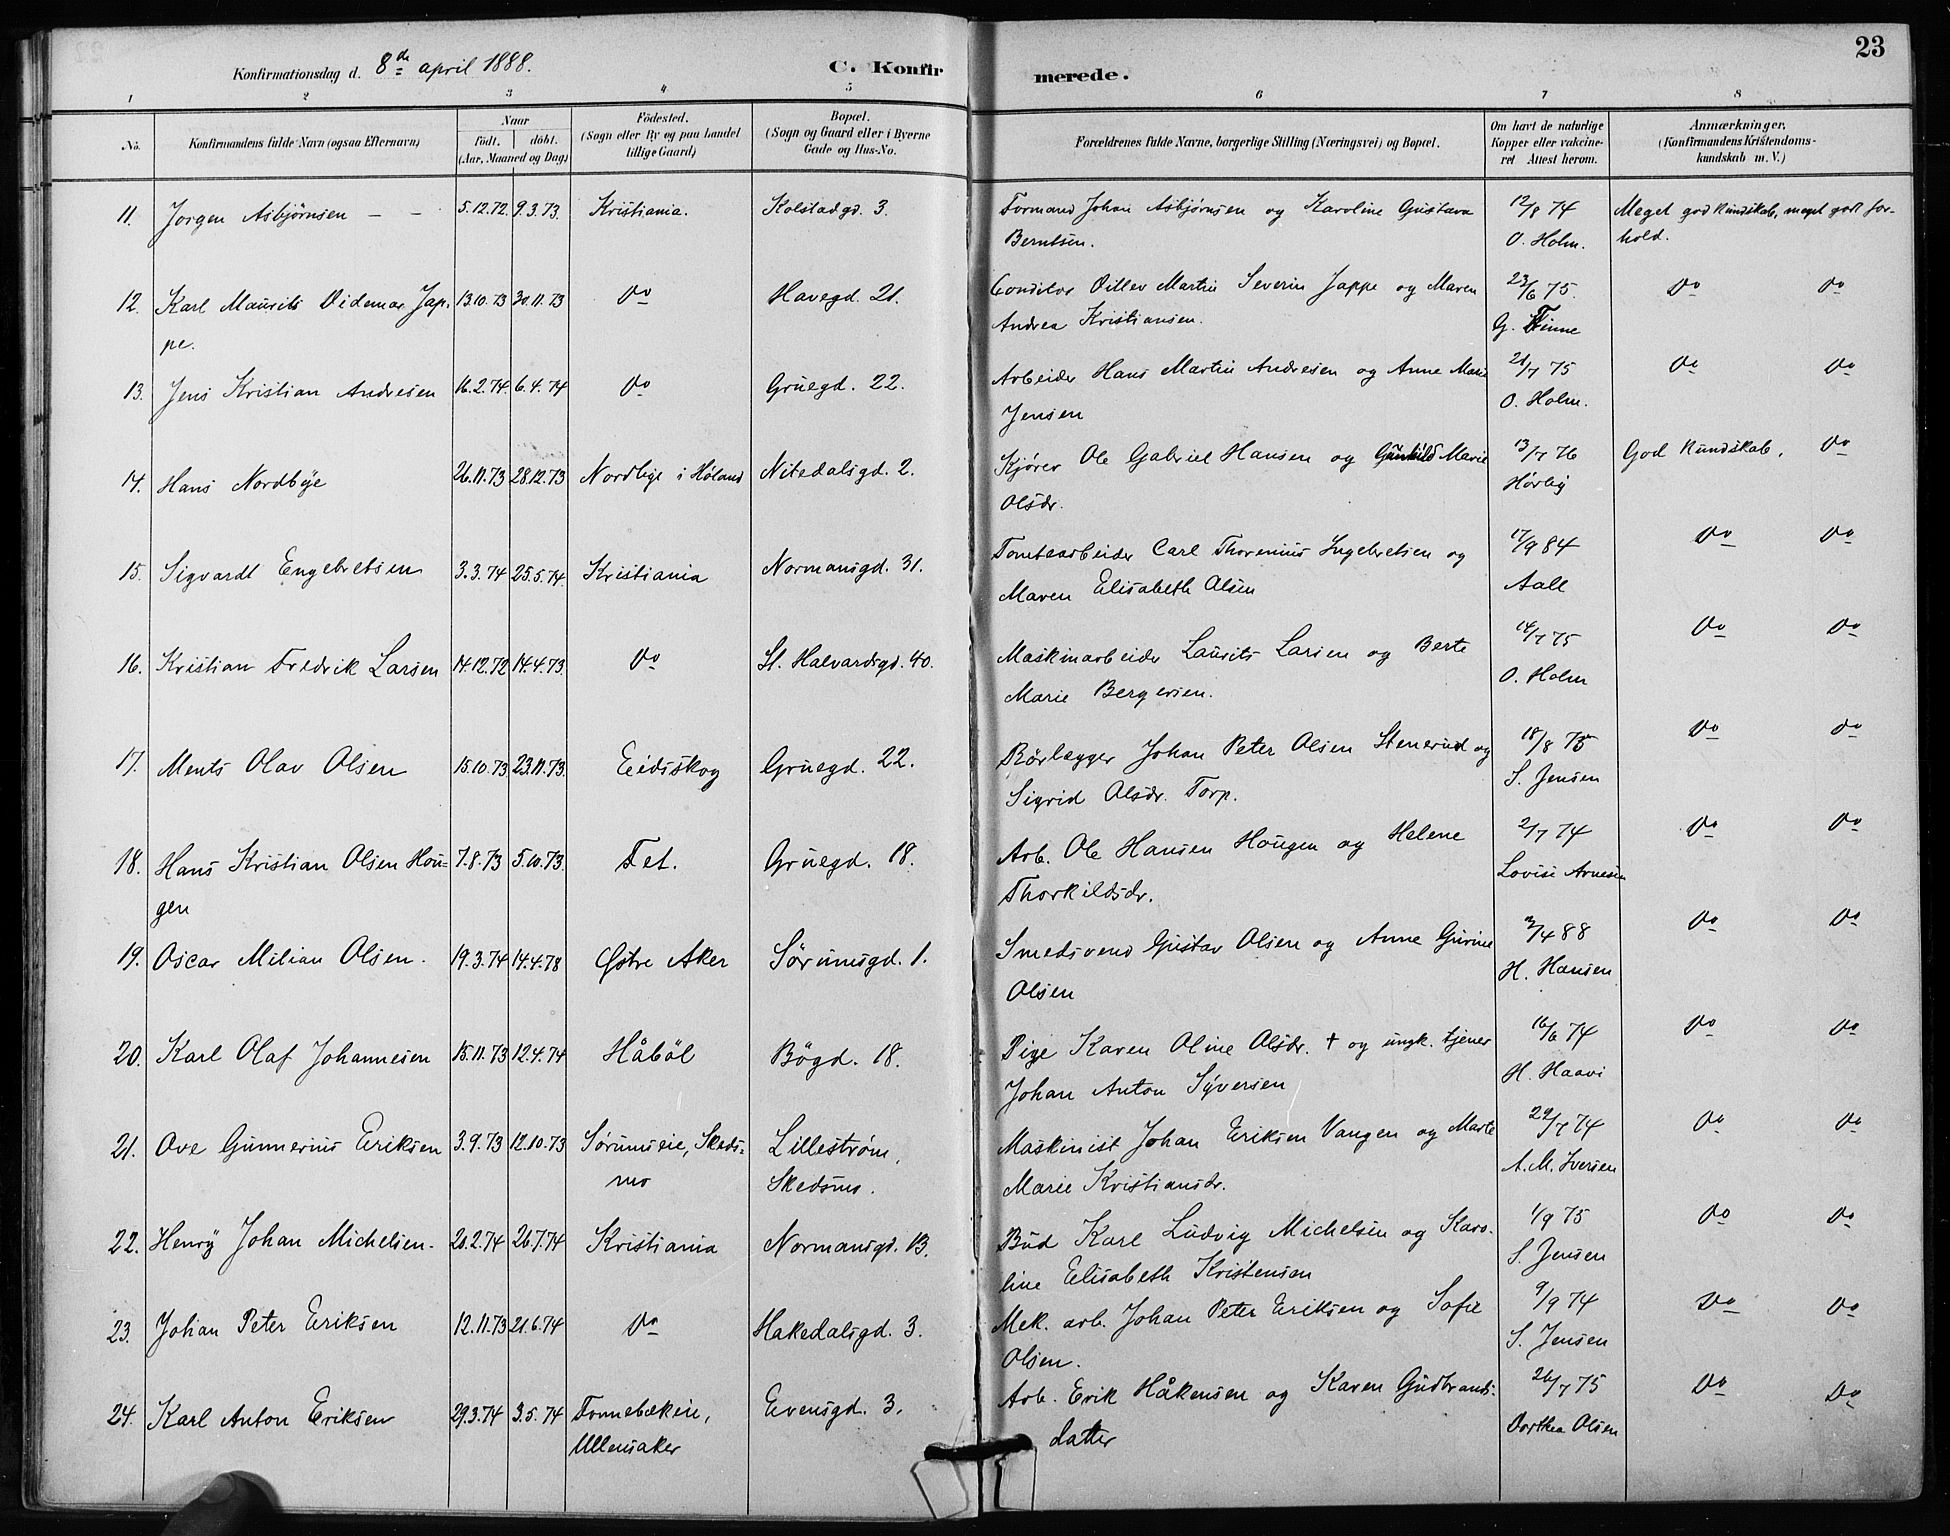 23
Konfirmationsdag d. 8de april 1888. C. Konfirmerede.
1 2 3 4 5 6 7 8
No. Konfirmandens fulde Navn (ogsaa Efternavn) Naar født. døbt. (Aar, Maaned og Dag)
Fødested. (Sogn eller By og paa Landet tillige Gaard)
Bopæl. (Sogn og Gaard eller i Byerne Gade og Hus-No.
Forældrenes fulde Navne, borgerlige Stilling (Næringsvei) og Bopæl.
Om havt de naturlige Kopper eller vakcineret Attest herom.
Anmærkninger. (Konfirmandens Kristendomskundskab m. V.)
11. Jørgen Asbjørnsen - - 5.12.72 9.3.73. Kristiania. Kolstadgd. 3. Formand Johan Asbjørnsen og Karoline Gustava 12/8 74 Meget god kundskab, meget godt for-
Berntsen. O. Holm. hold.
12. Karl Maurits Videmar Jap- 13.10.73 30.11.73 Do Havegd. 21. Conditor Ditlev Martin Severin Jappe og Maren 23/6 75. Do Do
pe. Andrea Kristiansen. G. Finne
13. Jens Kristian Andresen 16.2.74. 6.4.74 Do Gruegd. 22. Arbeider Hans Martin Andresen og Anne Marie 21/7 75 Do Do
Jensen O. Holm.
14. Hans Nordbye 26.11.73 28.12.73 Nordbye i Høland Nitedalsgd. 2. Kjører Ole Gabriel Hansen og Gunhild Marie 13/7 76 God kundskab, Do
Olsdr. Hørbÿ
15. Sigvardt Engebretsen 3.3.74 25.5.74. Kristiania Normansgd. 31. Tomtearbeider Carl Thorenius Ingebretsen og 17/9 84 Do Do
Maren Elisabeth Olsen Aall
16. Kristian Fredrik Larsen 14.12.72 14.4.73. Do St. Halvardsgd. 40. Maskinarbeider Laurits Larsen og Berte 14/7 75 Do Do
Marie Bergersen. O. Holm
17. Ments Olav Olsen 15.10.73 23.11.73. Eidsskog Gruegd. 22. Rørlægger Johan Peter Olsen Stenerud og 18/8 75 Do Do
Sigrid Olsdr. Torp. S. Jensen
18. Hans Kristian Olsen Hou- 7.8.73 5.10.73. Fet. Gruegd. 18. Arb. Ole Hansen Hougen og Helene 2/7 74 Do Do
gen Thorkildsdr. Lovise Arnesen
19. Oscar Milian Olsen. 19.3.74 14.4.78 Østre Aker Sørumsgd. 1. Smedsvend Gustav Olsen og Anne Gurine 3/4 88 Do Do
Olsen H. Hansen
20. Karl Olaf Johannesen 15.11.73 12.4.74 Håbøl Bøgd. 18. Pige Karen Oline Olsdr. † og ungk. tjener 16/6 74 Do Do
Johan Anton Syversen H. Haavi
21. Ove Gunnerius Eriksen 3.9.73 12.10.73 Sørumseie, Skeds- Lillestrøm, Maskinist Johan Eriksen Vangen og Marte 29/7 74 Do Do
mo Skedsmo. Marie Kristiansdr. A. M. Iversen
22. Henrÿ Johan Michelsen. 20.2.74 26.7.74 Kristiania Normansgd. 13. Bud Karl Ludvig Michelsen og Karo- 1/9 75 Do Do
line Elisabeth Kristensen S. Jensen
23. Johan Peter Eriksen 12.11.73 21.6.74 Do Hakedalsgd. 3. Mek. arb. Johan Peter Eriksen og Sofie 9/9 74 Do Do
Olsen. S. Jensen
24. Karl Anton Eriksen 29.3.74 3.5.74 Fonnebækeie, Evensgd. 3. Arb. Erik Håkensen og Karen Gudbrands- 26/7 75 Do Do
Ullensaker datter Dorthea Olsen